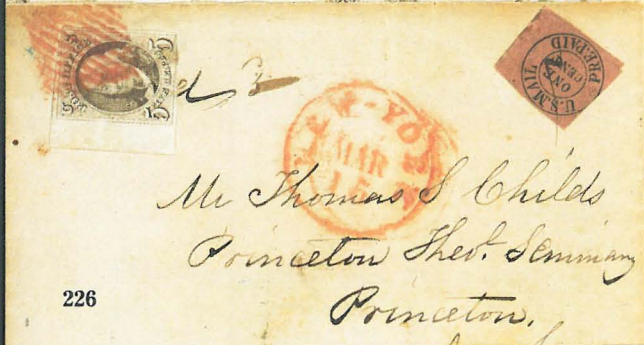 U.S.MAIL
ONE
CENT
PRE-PAID
NEW-YORK
MAR
15
Mr Thomas S Childs
Princeton Theol. Seminary
Princeton.
226